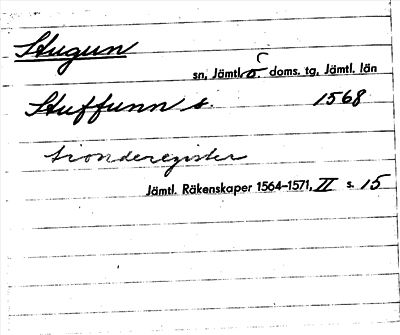 Stugun
sn, Jämtl. ö. doms. tg, Jämtl. län
Stuffunn s. 1568
tionderegister
Jämtl. Räkenskaper 1564–1571, II s. 15